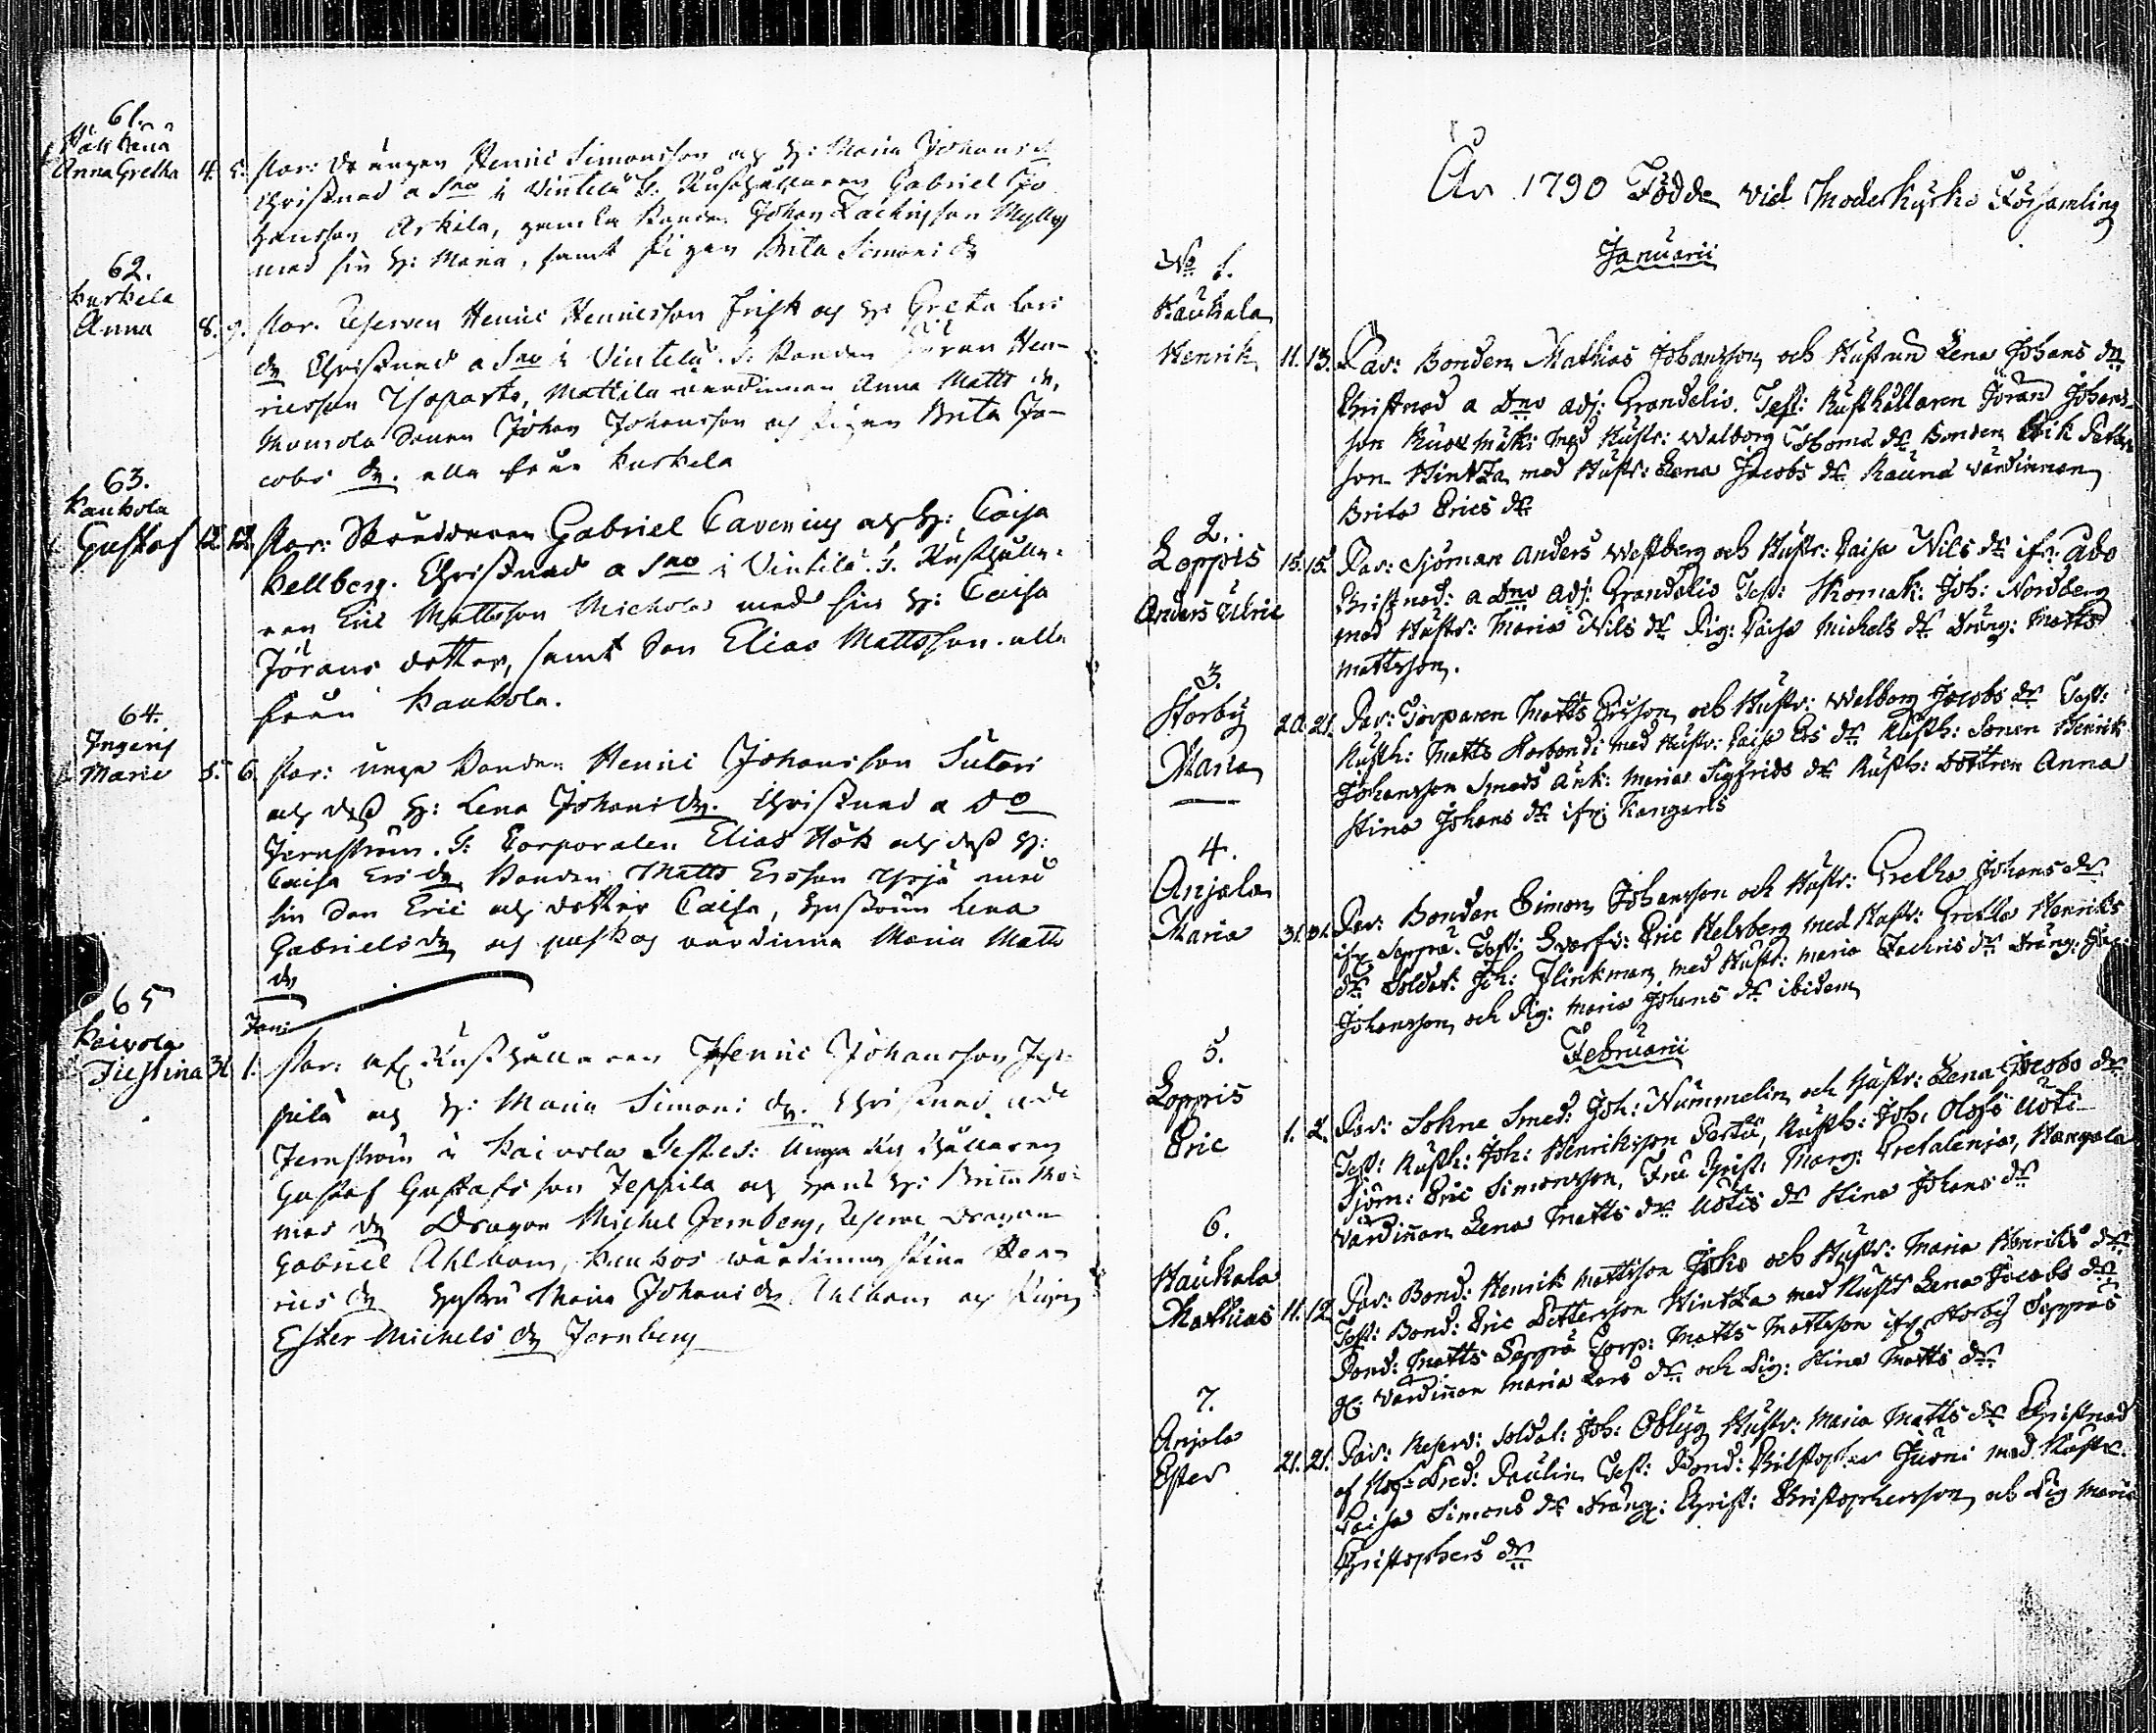 61.
Anna Gretha 4. 5. Par: Drängen Henric Simonsson och H: Maria Johans dr
Christnad a Sno i Vintelä. T. Rusthållaren Gabriel Jo
hansson Arkila, gamla bonden Johan Zachrisson Mylly
med sin H: Maria, samt pigan Brita Simons dr
62.
Kurkela
Anna 8. 9. Par. Henric Henricsson Frisk och H: Greta Lars
dr Christnad a Sno i Vintelä. T. bonden Jöran Hen-
ricsson, Mattila värdinnan Anna Matts dr,
sonen Johan Johansson och pigan Brita Ja-
cobs dr. alla från Kurkela
63.
Kaukola
Gustaf 12. 12. Par: Skräddaren Gabriel Cavenius och H: Caisa
Hellberg. Christnad a Sno i Vintelä. T. Rusthålla-
ren Eric Mattsson Michola med sin H: Caisa
Jörans dotter, samt son Elias Mattsson. alla
från Kaukola.
64.
Ingeris
Maria 5. 6. Par: unga bonden Henric Johansson Sutari
och dess H: Lena Johans dr. Christnad a Do
Jernström. T: Corporalen Elias Hök och dess H:
Caisa Ers dr bonden Matts Ersson Yrjä med
sin son Eric och dotter Caisa, hustrun Lena
Gabriels dr och värdinna Maria Matts
dr
65
Kaivola
Justina 31. 1. Par: Rusthållaren Henric Johansson Jep-
pilä och H: Maria Simons dr. Christnad a Do
Jernström i Kaivola Testes: Unga Rusthållaren
Gustaf Gustafsson Jeppila och hans H: Brita Tho-
mas dr Dragon Michel Jernberg, Reserve dragon
Gabriel Ahlbom, värdinna Stina Hen-
rics dr hustru Maria Johans dr Ahlbom och pigan
Ester Michels dr Jernberg
År 1790 Födde vid Moderkyrko Församling
Januarii
No 1.
Haukala
Henrik 11. 13. Par: Bonden Mathias Johansson och Hustrun Lena Johans dr
Christnad a Dno Adj: Grandelio. Test: Rusthållaren Jöran Johans-
son med Hustr: Walborg Thoms dr Bonden Erik Petters
son Hintza med Hustr: Lena Jacobs dr Rauna värdinnan
Brita Erics dr
2.
Loppis 15. 15. Par: Sjöman Anders Westberg och Hustr: Caisa Nils dr ifr: Åbo
Anders Ulric Christnad: a Dno Adj: Grandelio Test: Skomak: Joh: Nordberg
med Hustr: Maria Nils dr Pig: Caisa Michels dr Dräng: Matts
Mattsson.
3.
Storby 20. 21. Par: Torparen Matts Ersson och Hustr: Walborg Jacobs dr Test:
Maria Rusth: Matts Storbondi med Hustr: Caisa Ers dr Rusth: Sonen Henrik
Johansson Smeds Änk: Maria Sigfrids dr Rusth: Dottren Anna
Stina Johans dr ifr: Kangaris
4.
Anjala
Maria 31. 31. Par: Bonden Simon Johansson och Hustr: Gretha Johans dr
ifr Seppä. Test: Eric Helsberg med Hustr: Gretha Henriks
dr Soldat: Joh: Flinkman med Hustr: Maria Zachris dr Dräng:
Johansson och Pig: Maria Johans dr ibidem
Februarii
5.
Loppis
Eric 1. 2. Par: Sokne Smed: Joh: Nummelin och Hustr: Lena Jacobs dr
Test: Rusth: Joh: Henriksson Perttu, Rusth: Joh: Olofs Uoti
Sjöm: Eric Simonsson, Fru Christ: Marg: Pretalenia, Kangala
Värdinnan Lena Matts dr Uotis dr Stina Johans dr
6.
Haukala
Mathias 11. 12. Par: Bond: Henrik Mattsson Joko och Hustr: Maria Henriks dr
Test: Bond: Eric Pettersson Hintza med Hustr Lena Jacobs dr
Bond: Matts Seppä Torp: Matts Mattsson ifr. Storby Seppäs
Värdinnan Maria Lars dr och Pig: Stina Matts dr
7.
Anjala
Ester 21. 21. Par: Reserv: Soldat: Joh: Oblyg Hustr: Maria Matts dr Christnad
af Pred: Paulin Test: Bond: Christopher Juoni med Hustr:
Caisa Simons dr Dräng: Christ: Christophersson och Pig Maria
Christophers dr